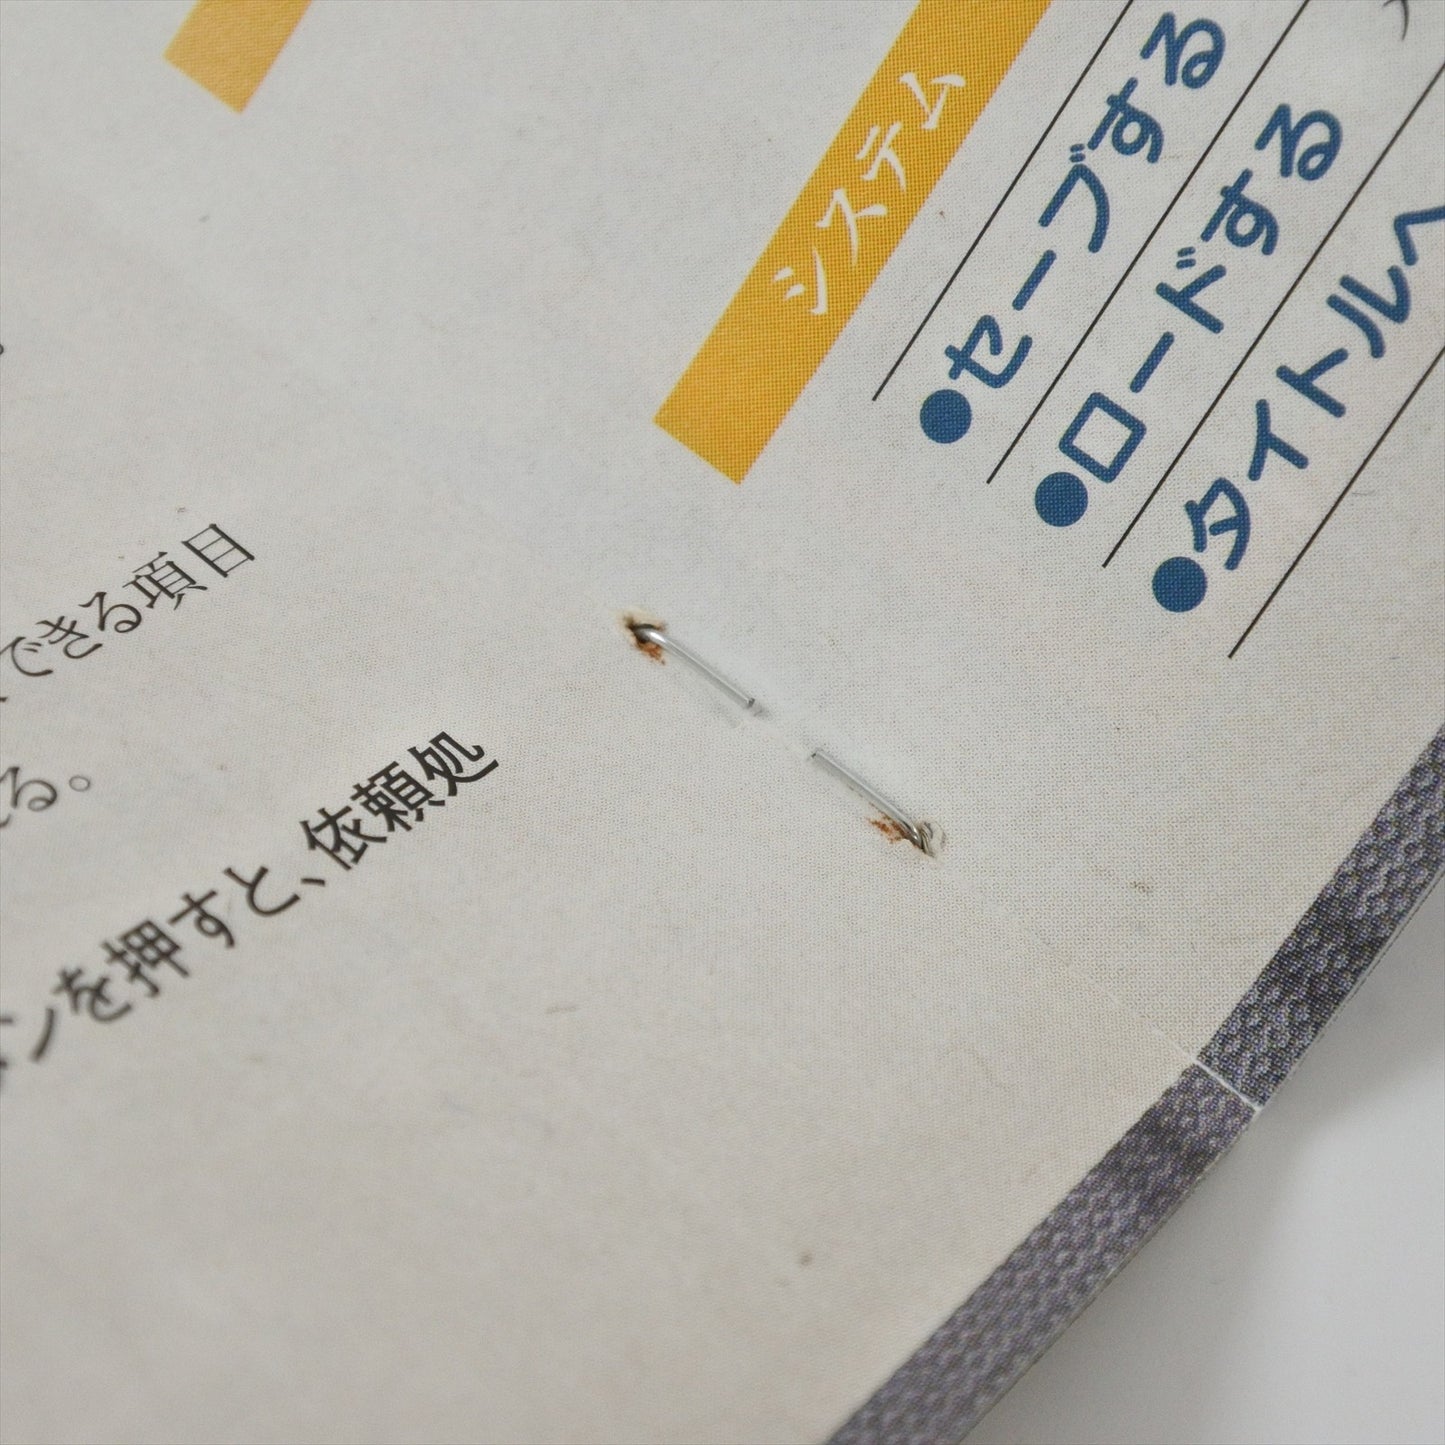 システム
●セーブする
●ロードする
●タイトルへ
できる項目
る。
ンを押すと、依頼処